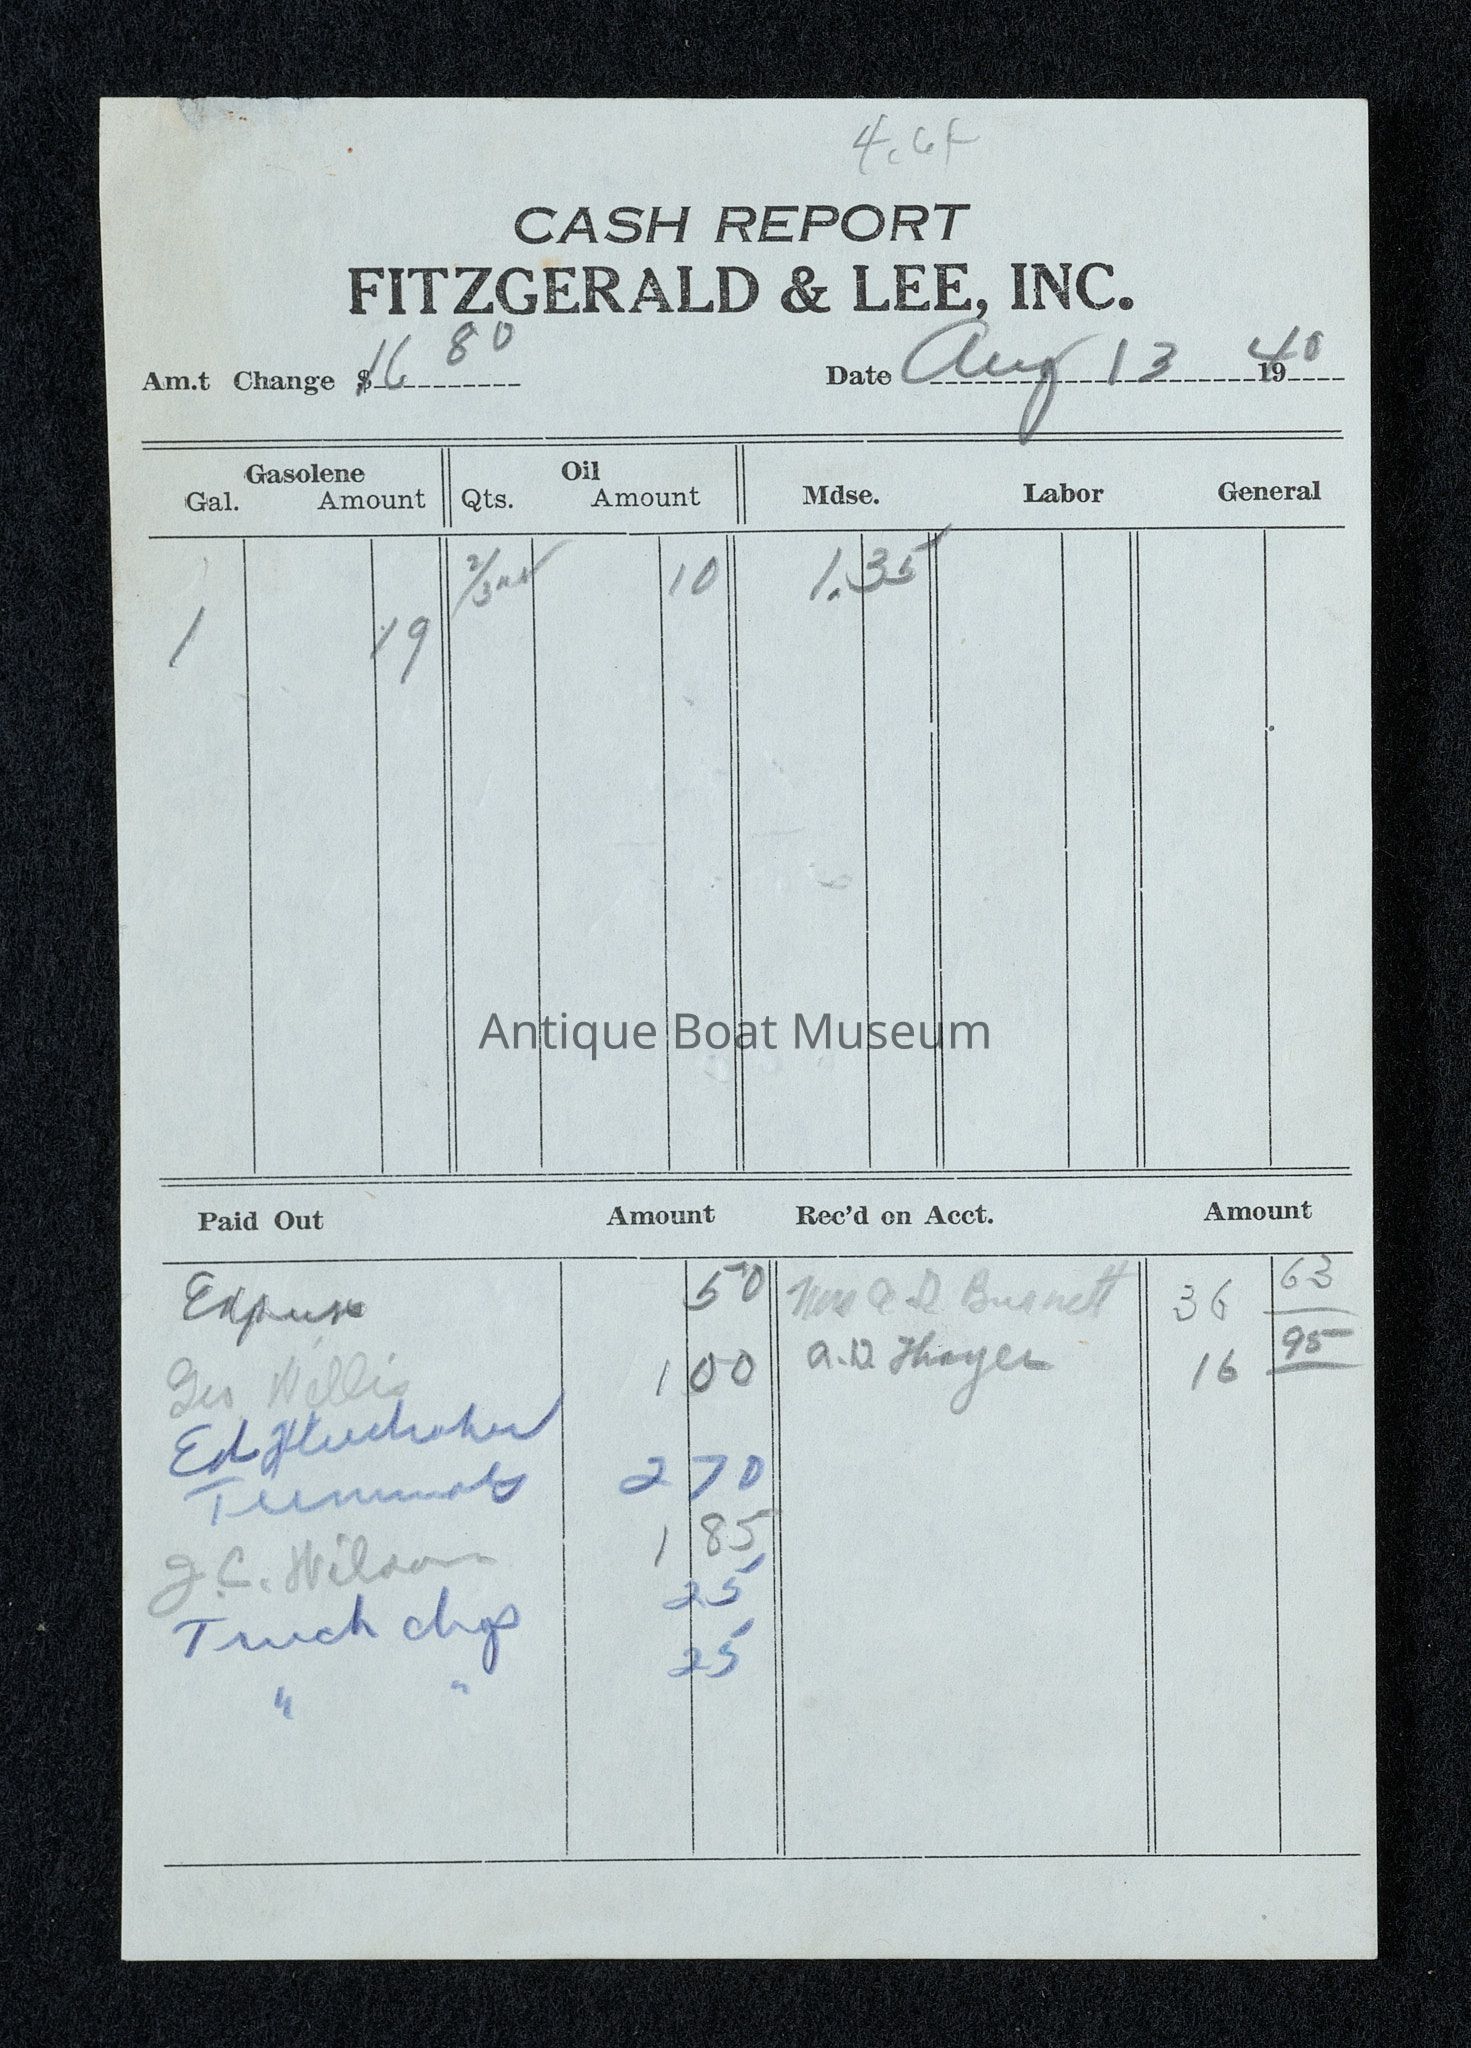 CASH REPORT
FITZGERALD & LEE, INC.
Am.t Change $ 16 80
Date Aug 13 1940
Gasolene Oil
Gal. Amount Qts. Amount Mdse. Labor General
2/3 10 1.35
1 19
Antique Boat Museum
Paid Out Amount Rec'd on Acct. Amount
Expense 50 Mrs A D Burnett 36 63
Geo Willis 1 00 A.D. Thayer 16 95
Ed
2 70
J.C. Wilson 1 85
Truck chgs 25
" " 25